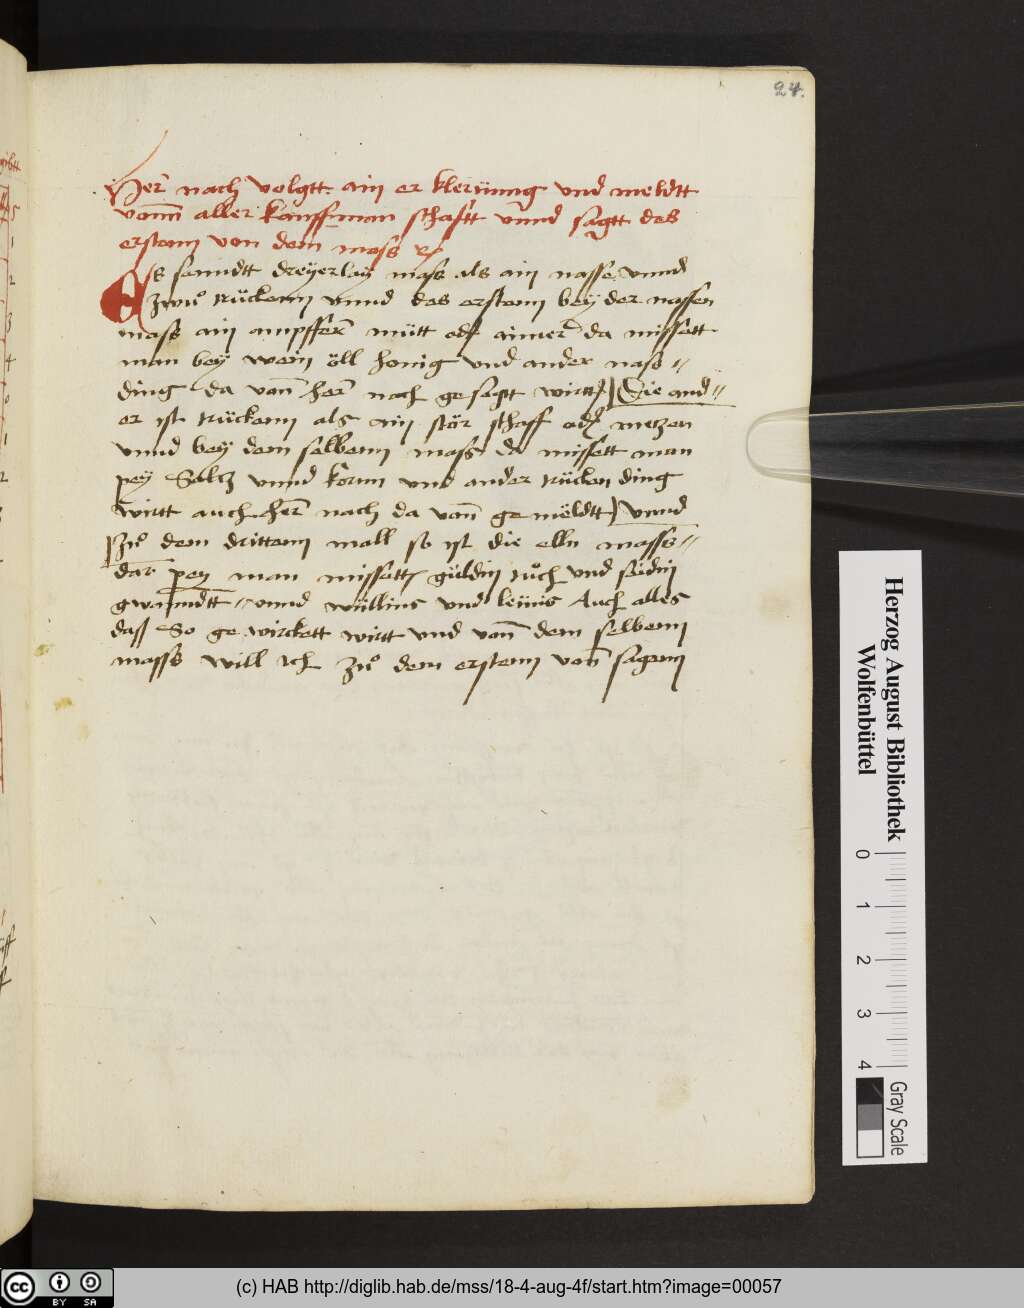 24.
Her̄ nach volgtt ain er klerünng vnd meldtt
vonn̄ aller kauffman schafftt vnnd sagtt des
erstenn von dem mass ꝛc
Es senndtt dreyerlay mass als ain nasse vnnd
zwuͦ trückenn vnnd des erstenn bey der nassen
mass ain ampffer̄ mütt oder aimer da missett
man bey wein öll honig vnd ander nass〃
ding da von̄ her̄ nach gesagt wirtt Die and〃
er ist trückenn als ain stör schaff oder metzen
vnnd bey dem selbenn mass da missett man
pey Saltz vnnd kornn vnd ander trücken ding
wirtt auch her̄ nach da von̄ ge meldtt vnnd
Zuͦ dem drittenn mall so ist die elln mass〃
dar peÿ man missett güldin tuͦch vnd sidin
gwanndtt〃 vnnd wüllins vnd leinis Auch alles
dass So ge wirckett wirtt vnd von̄ dem selbenn
masss will Ich Zuͦ dem erstenn von̄ sagenn
Herzog August Bibliothek
Wolfenbüttel
0 1 2 3 4
Gray Scale
cc BY SA
(c) HAB http://diglib.hab.de/mss/18-4-aug-4f/start.htm?image=00057